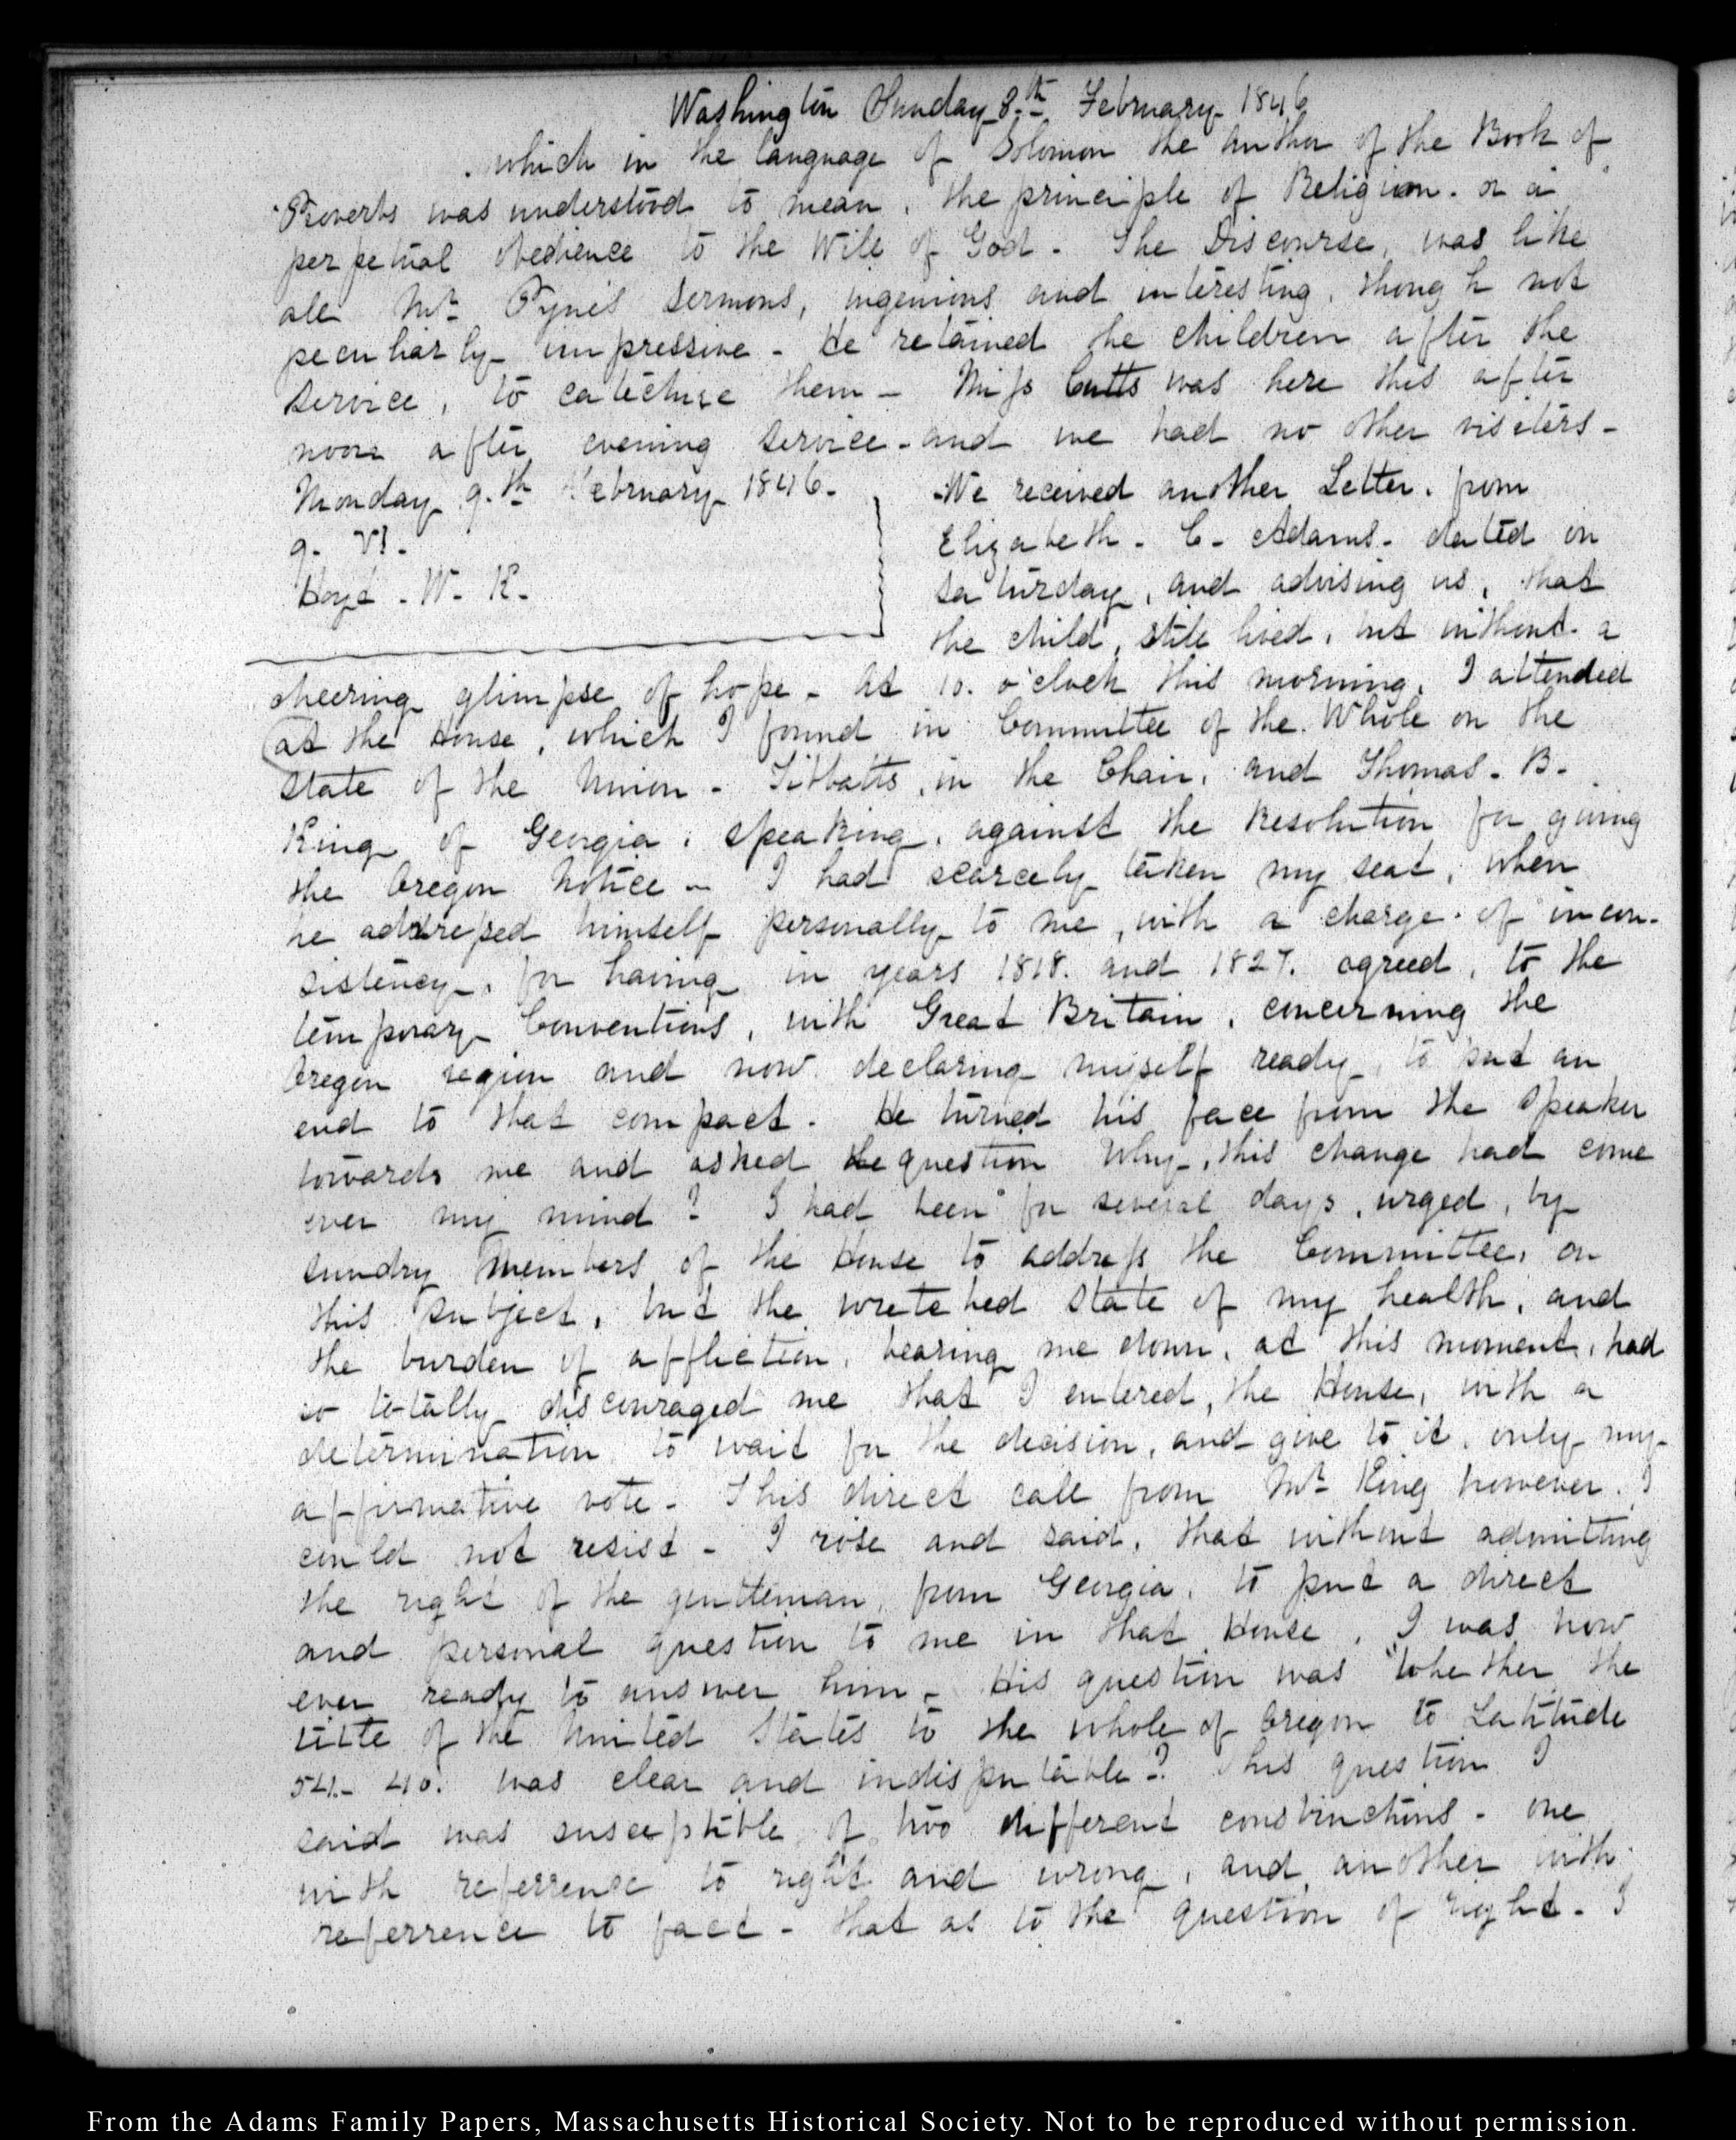 Washington Sunday 8.th February 1846
which in the language of Solomon the author of the Book of
Proverbs was understood to mean, the principle of Religion. or a
perpetual obedience to the Will of God - The Discourse, was like
all Mr. Pyne's sermons, ingenious and interesting, though not
peculiarly impressive - He retained the children after the
service, to catechise them - Miss Cutts was here this after
noon after evening service - and we had no other visiters -
Monday 9.th February 1846.
9. VI.
Hoyt. W. K.
We received another Letter, from
Elizabeth. C. Adams. dated on
Saturday, and advising us, that
the child, still lived, but without a
cheering glimpse of hope - At 10. o'clock this morning, I attended
at the House, which I found in Committee of the Whole on the
state of the Union - Tibbatts, in the Chair, and Thomas. B.
King of Georgia, speaking, against the Resolution for giving
the Oregon Notice - I had scarcely taken my seat, when
he addressed himself personally to me, with a charge of incon-
sistency, for having in years 1818. and 1827. agreed, to the
temporary Conventions, with Great Britain, concerning the
Oregon region and now declaring myself ready, to put an
end to that compact. He turned his face from the Speaker
towards me and asked the question Why, this change had come
over my mind? I had been for several days, urged, by
sundry members of the House to address the Committee, on
this subject, but the wretched state of my health, and
the burden of affliction, bearing me down, at this moment, had
so totally discouraged me that I entered, the House, with a
determination to wait for the decision, and give to it, only my
affirmative vote - This direct call from Mr. King however. I
could not resist - I rose and said, that without admitting
the right of the gentleman, from Georgia, to put a direct
and personal question to me in that House, I was how
ever ready to answer him - His question was "Whether the
title of the United States to the whole of Oregon to Latitude
54.- 40. was clear and indisputable? This question I
said was susceptible of two different constructions - one
with referrence to right and wrong, and another with
referrence to fact - that as to the question of right - I
From the Adams Family Papers, Massachusetts Historical Society. Not to be reproduced without permission.